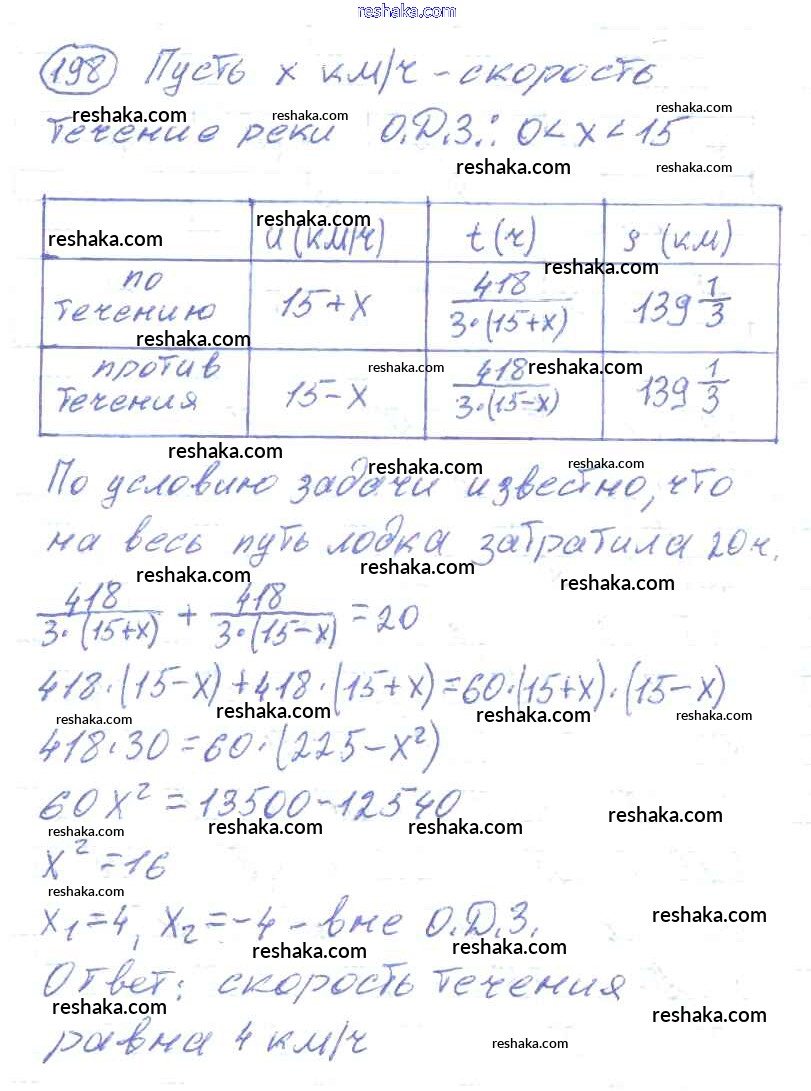 reshaka.com
198 Пусть x км/ч - скорость
reshaka.com reshaka.com reshaka.com
течение реки О.Д.З.: 0 < x < 15
reshaka.com reshaka.com
reshaka.com
reshaka.com u (км/ч) t (ч) s (км)
reshaka.com
по течению 15+x 418/3·(15+x) 139 1/3
reshaka.com
reshaka.com reshaka.com
против течения 15-x 418/3·(15-x) 139 1/3
reshaka.com reshaka.com reshaka.com
По условию задачи известно, что
на весь путь лодка затратила 20 ч.
reshaka.com reshaka.com reshaka.com
418/3·(15+x) + 418/3·(15-x) = 20
418·(15-x)+418·(15+x)=60·(15+x)·(15-x)
reshaka.com reshaka.com reshaka.com reshaka.com
418·30=60·(225-x²)
60x²=13500-12540
reshaka.com reshaka.com reshaka.com reshaka.com
x²=16
reshaka.com
x₁=4, x₂=-4 - вне О.Д.З.
reshaka.com
reshaka.com reshaka.com
Ответ: скорость течения
reshaka.com reshaka.com
равна 4 км/ч
reshaka.com